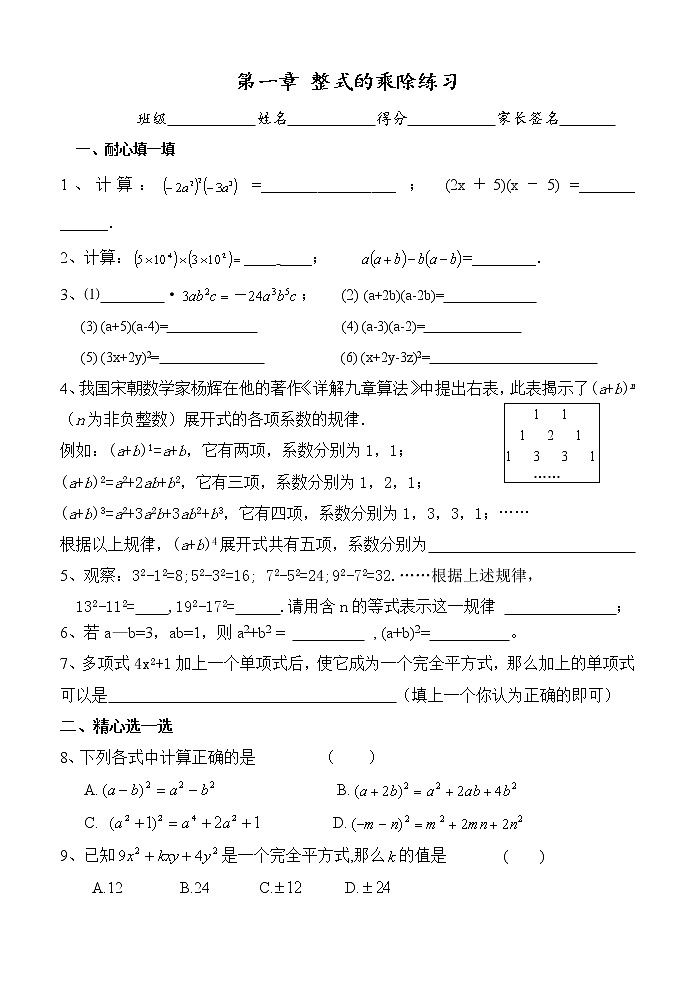 第一章 整式的乘除练习
班级___________姓名___________得分___________家长签名_______
一、耐心填一填
1、计算：(−2a²)²(−3a³) =_________________； (2x＋5)(x－5) =_______
______.
2、计算：(5×10⁴)×(3×10²)=________； a(a+b)−b(a−b)=________.
3、⑴________·3ab²c＝−24a³b⁵c； (2) (a+2b)(a-2b)=____________
(3) (a+5)(a-4)=____________ (4) (a-3)(a-2)=____________
(5) (3x+2y)²=______________ (6) (x+2y-3z)²=______________________
4、我国宋朝数学家杨辉在他的著作《详解九章算法》中提出右表，此表揭示了(a+b)ⁿ
（n为非负整数）展开式的各项系数的规律.
1 1
1 2 1
1 3 3 1
……
例如：(a+b)¹=a+b，它有两项，系数分别为1，1；
(a+b)²=a²+2ab+b²，它有三项，系数分别为1，2，1；
(a+b)³=a²+3a²b+3ab²+b³，它有四项，系数分别为1，3，3，1；……
根据以上规律，(a+b)⁴展开式共有五项，系数分别为__________________________
5、观察：3²-1²=8；5²-3²=16； 7²-5²=24；9²-7²=32.……根据上述规律，
13²-11²=____,19²-17²=_____.请用含n的等式表示这一规律 ______________；
6、若a—b=3，ab=1，则a²+b²＝ _________ ，(a+b)²=__________。
7、多项式4x²+1加上一个单项式后，使它成为一个完全平方式，那么加上的单项式
可以是____________________________________（填上一个你认为正确的即可）
二、精心选一选
8、下列各式中计算正确的是 （ ）
A. (a−b)²=a²−b² B. (a+2b)²=a²+2ab+4b²
C. (a²+1)²=a⁴+2a²+1 D. (−m−n)²=m²+2mn+2n²
9、已知9x²+kxy+4y²是一个完全平方式,那么k的值是 ( )
A.12 B.24 C.±12 D.±24